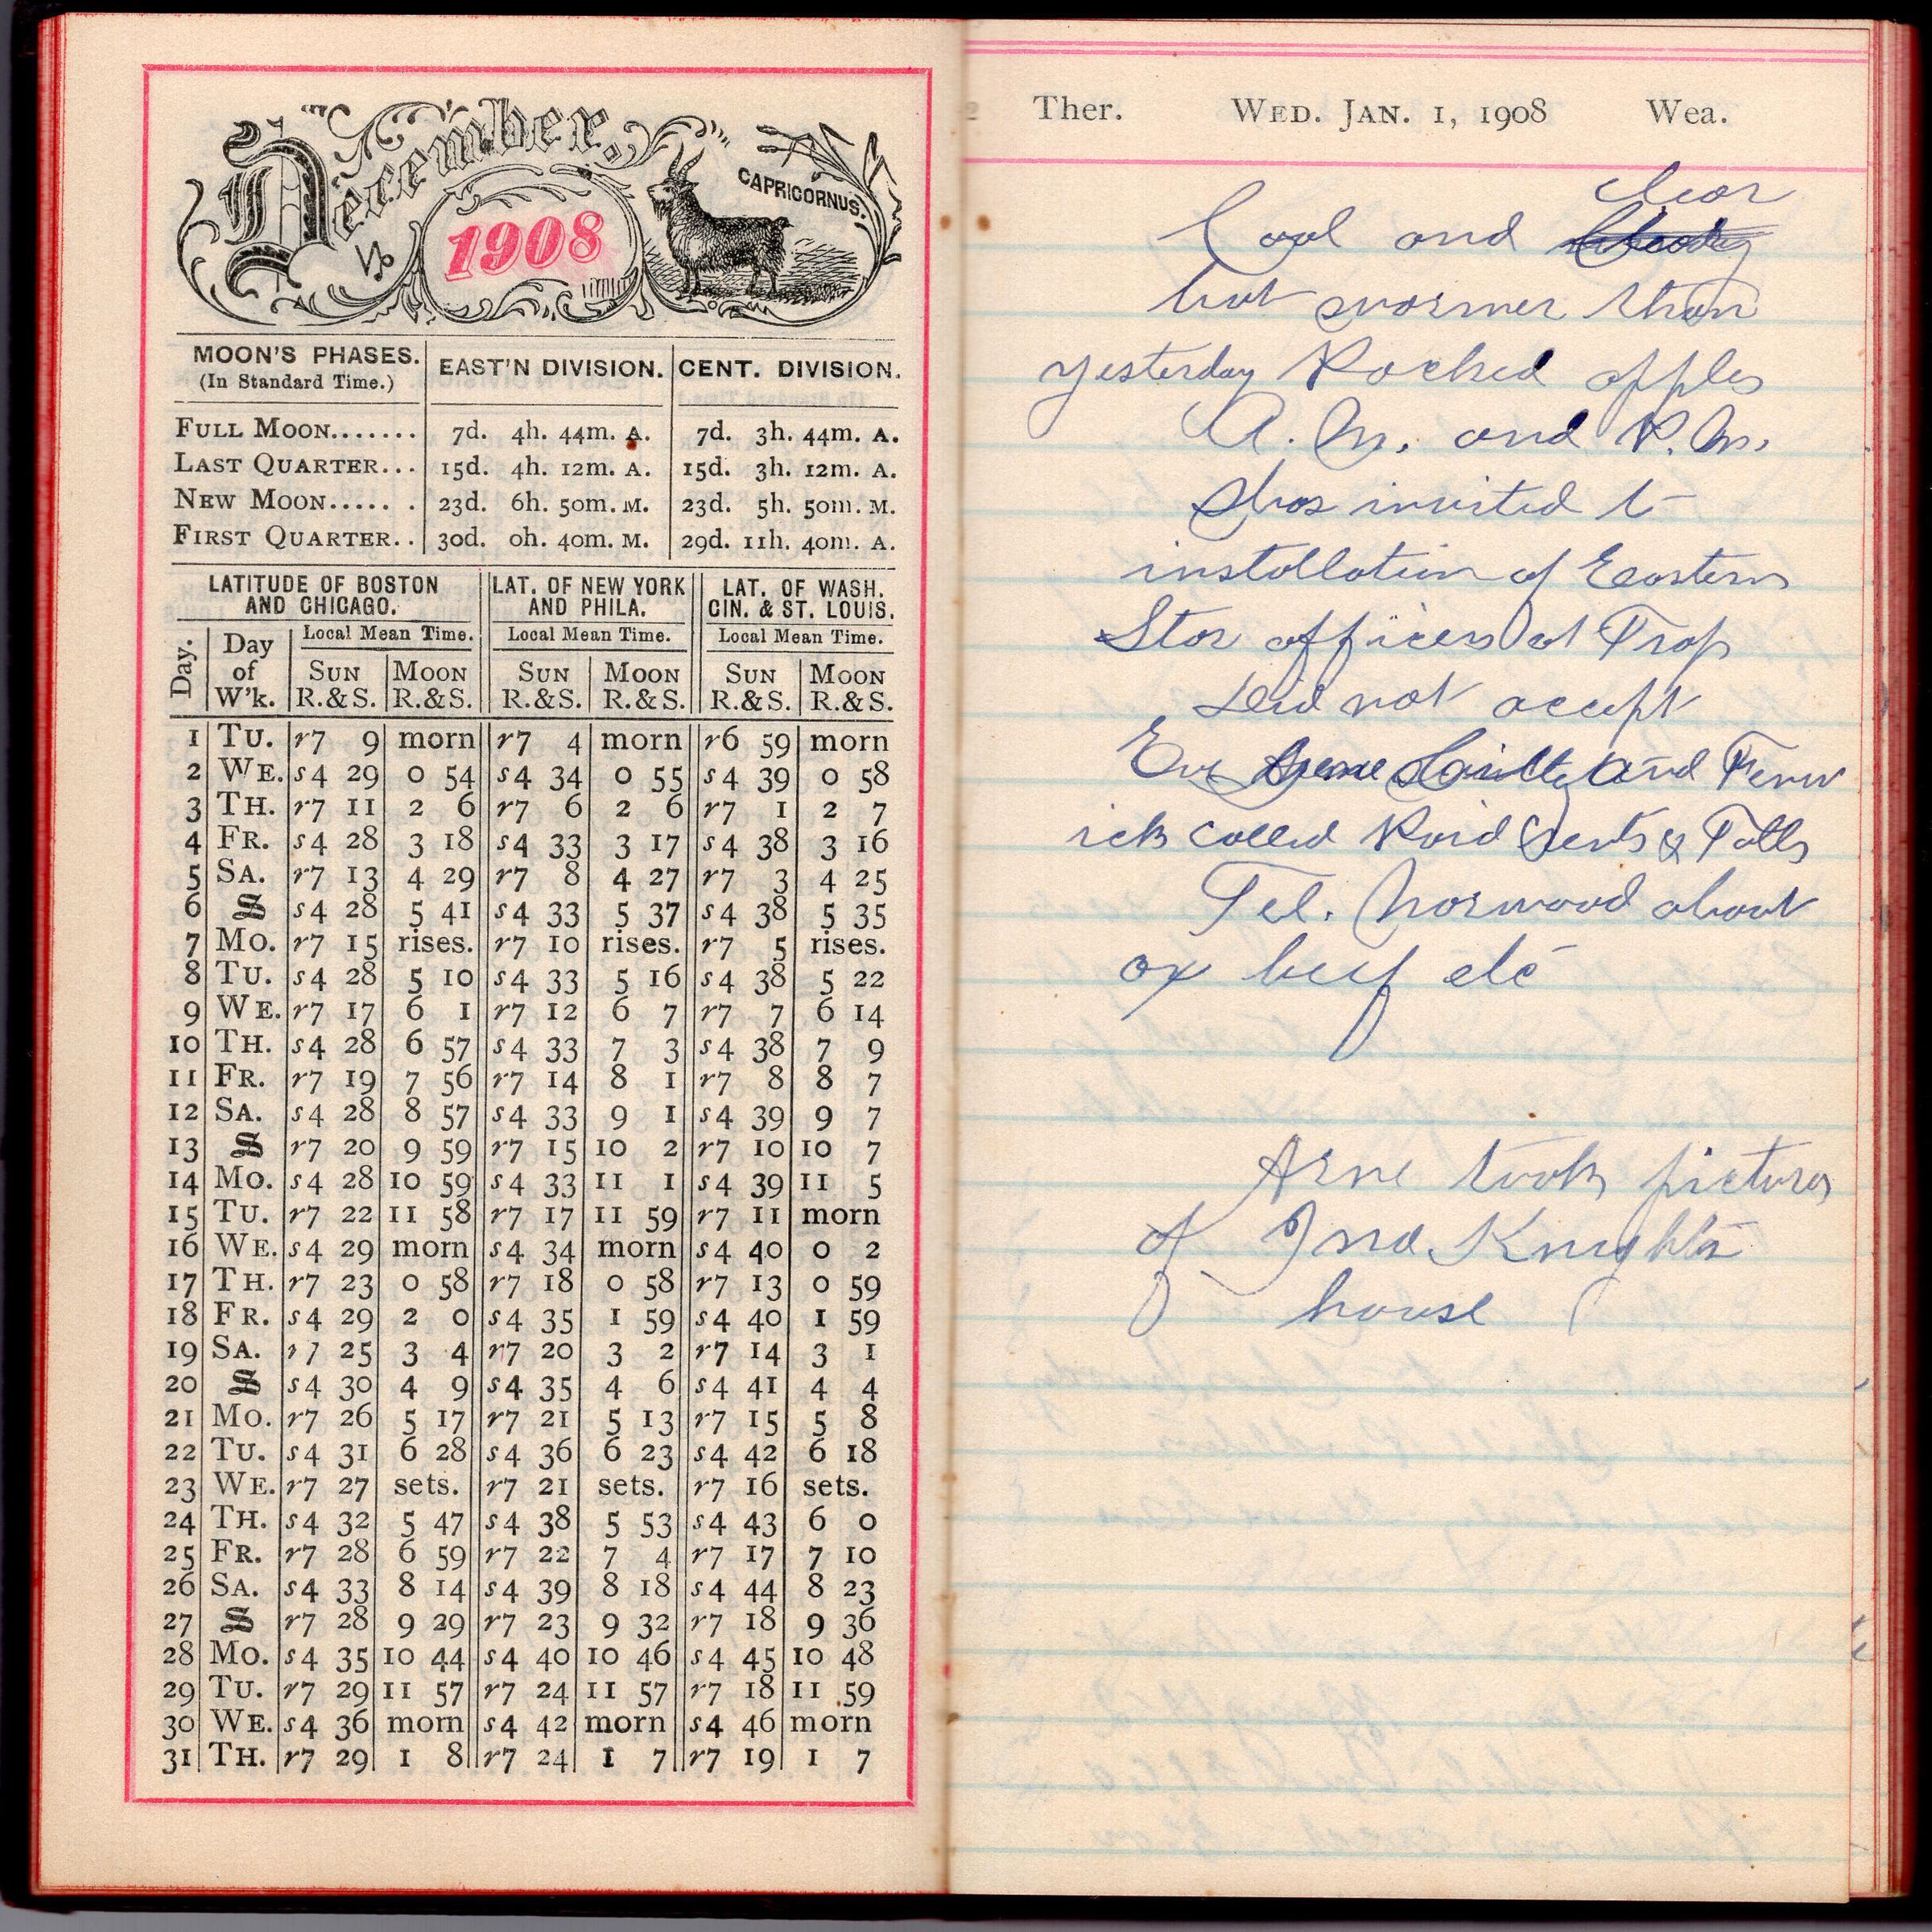 December.
1908
CAPRICORNUS.
MOON'S PHASES. EAST'N DIVISION. CENT. DIVISION.
(In Standard Time.)
FULL MOON....... 7d. 4h. 44m. A. 7d. 3h. 44m. A.
LAST QUARTER... 15d. 4h. 12m. A. 15d. 3h. 12m. A.
NEW MOON...... 23d. 6h. 50m. M. 23d. 5h. 50m. M.
FIRST QUARTER.. 30d. 0h. 40m. M. 29d. 11h. 40m. A.
LATITUDE OF BOSTON LAT. OF NEW YORK LAT. OF WASH.
AND CHICAGO. AND PHILA. CIN. & ST. LOUIS.
Local Mean Time. Local Mean Time. Local Mean Time.
Day. Day of W'k. SUN R.&S. MOON R.&S. SUN R.&S. MOON R.&S. SUN R.&S. MOON R.&S.
1 TU. r7 9 morn r7 4 morn r6 59 morn
2 WE. s4 29 0 54 s4 34 0 55 s4 39 0 58
3 TH. r7 11 2 6 r7 6 2 6 r7 1 2 7
4 FR. s4 28 3 18 s4 33 3 17 s4 38 3 16
5 SA. r7 13 4 29 r7 8 4 27 r7 3 4 25
6 S s4 28 5 41 s4 33 5 37 s4 38 5 35
7 MO. r7 15 rises. r7 10 rises. r7 5 rises.
8 TU. s4 28 5 10 s4 33 5 16 s4 38 5 22
9 WE. r7 17 6 1 r7 12 6 7 r7 7 6 14
10 TH. s4 28 6 57 s4 33 7 3 s4 38 7 9
11 FR. r7 19 7 56 r7 14 8 1 r7 8 8 7
12 SA. s4 28 8 57 s4 33 9 1 s4 39 9 7
13 S r7 20 9 59 r7 15 10 2 r7 10 10 7
14 MO. s4 28 10 59 s4 33 11 1 s4 39 11 5
15 TU. r7 22 11 58 r7 17 11 59 r7 11 morn
16 WE. s4 29 morn s4 34 morn s4 40 0 2
17 TH. r7 23 0 58 r7 18 0 58 r7 13 0 59
18 FR. s4 29 2 0 s4 35 1 59 s4 40 1 59
19 SA. r7 25 3 4 r7 20 3 2 r7 14 3 1
20 S s4 30 4 9 s4 35 4 6 s4 41 4 4
21 MO. r7 26 5 17 r7 21 5 13 r7 15 5 8
22 TU. s4 31 6 28 s4 36 6 23 s4 42 6 18
23 WE. r7 27 sets. r7 21 sets. r7 16 sets.
24 TH. s4 32 5 47 s4 38 5 53 s4 43 6 0
25 FR. r7 28 6 59 r7 22 7 4 r7 17 7 10
26 SA. s4 33 8 14 s4 39 8 18 s4 44 8 23
27 S r7 28 9 29 r7 23 9 32 r7 18 9 36
28 MO. s4 35 10 44 s4 40 10 46 s4 45 10 48
29 TU. r7 29 11 57 r7 24 11 57 r7 18 11 59
30 WE. s4 36 morn s4 42 morn s4 46 morn
31 TH. r7 29 1 8 r7 24 1 7 r7 19 1 7
Ther. WED. JAN. 1, 1908 Wea.
clear
Cool and Cloudy
but warmer than
yesterday Packed apples
A.M. and P.M.
Was invited to
installation of Eastern
Star officers at Trap
Did not accept
Eve and Fenw
ick called Paid Cents & Tolls
Tel. Norwood about
ox beef etc
Arne took pictures
of Jno. Knight's
house